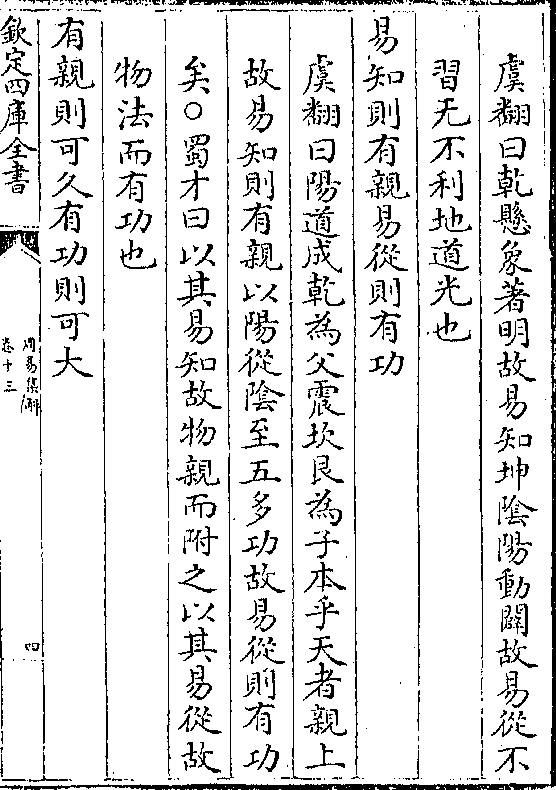 虞翻曰乾懸象著明故易知坤陰陽動闢故易從不
習无不利地道光也
易知則有親易從則有功
虞翻曰陽道成乾為父震坎艮為子本乎天者親上
故易知則有親以陽從陰至五多功故易從則有功
矣○蜀才曰以其易知故物親而附之以其易從故
物法而有功也
有親則可久有功則可大
欽定四庫全書
周易集解
卷十三
四